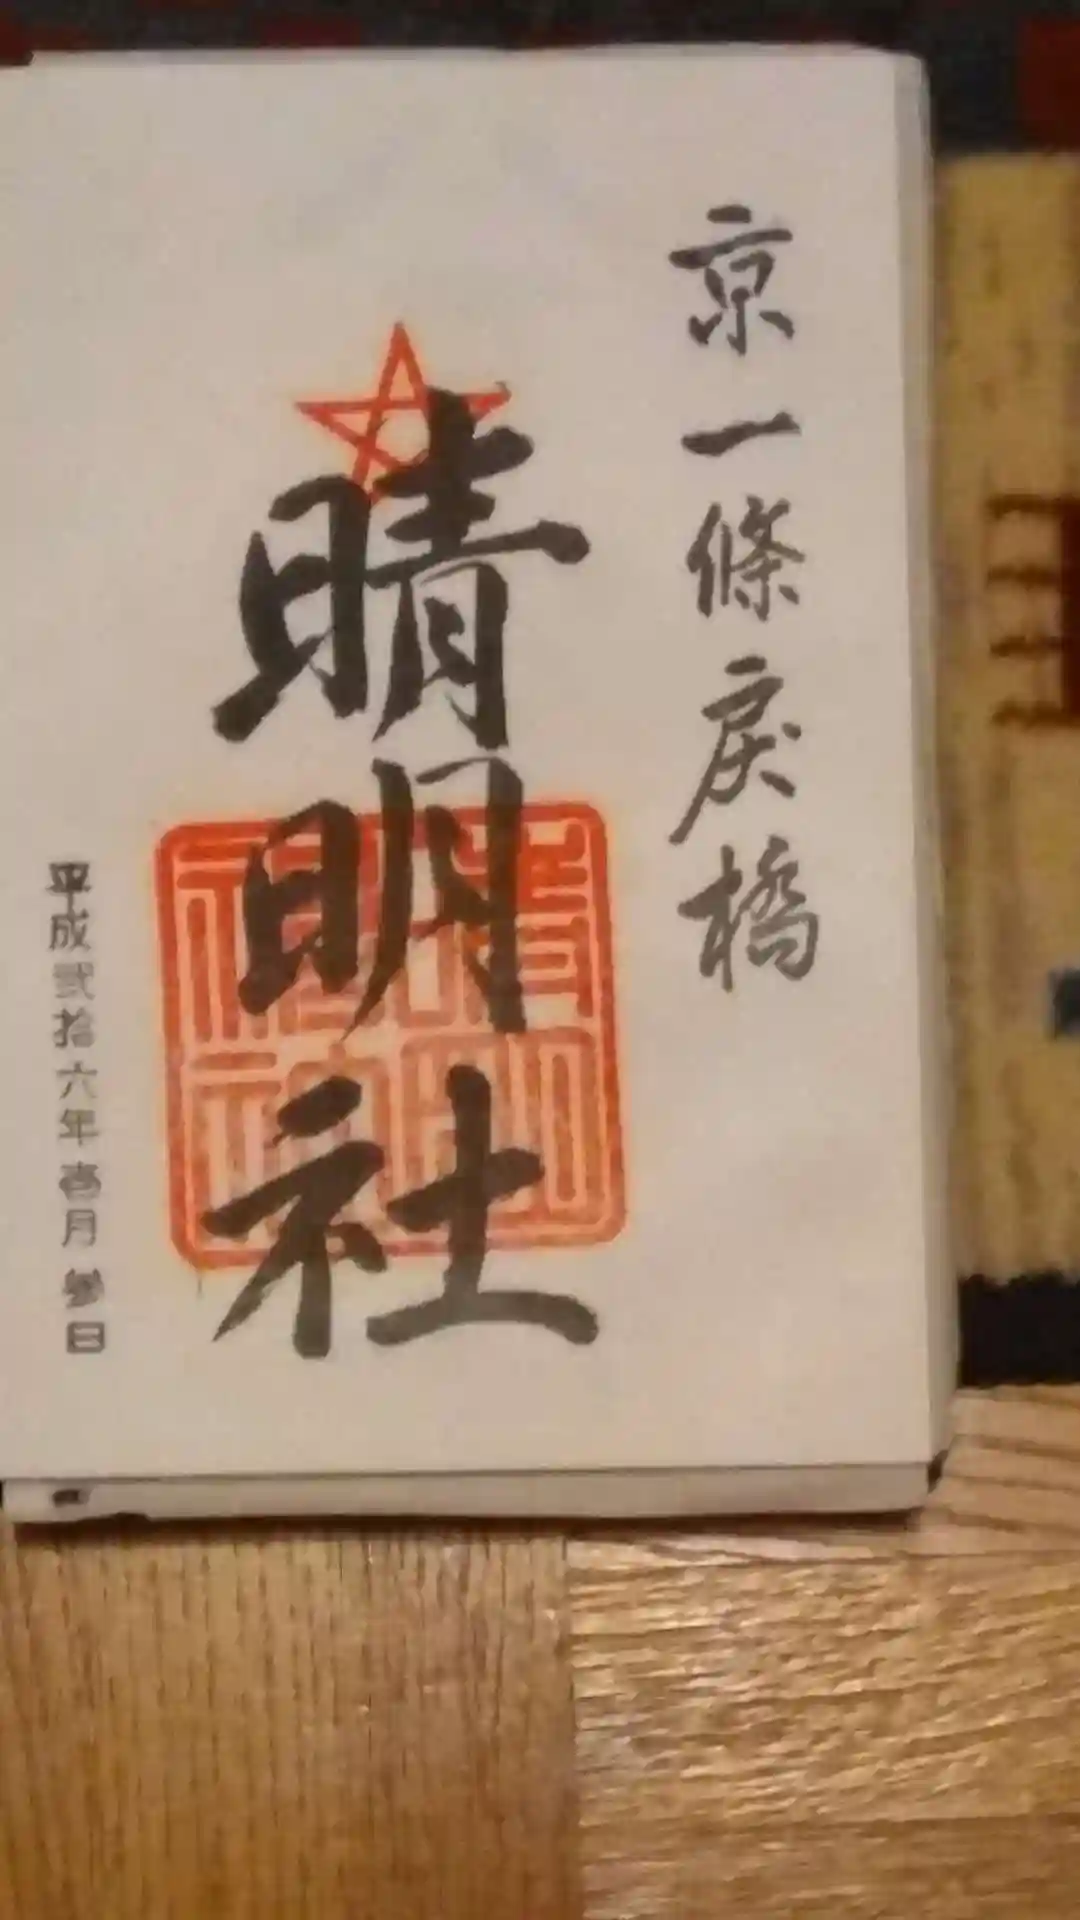 京一條戻橋
晴明社
平成弐拾六年壱月参日